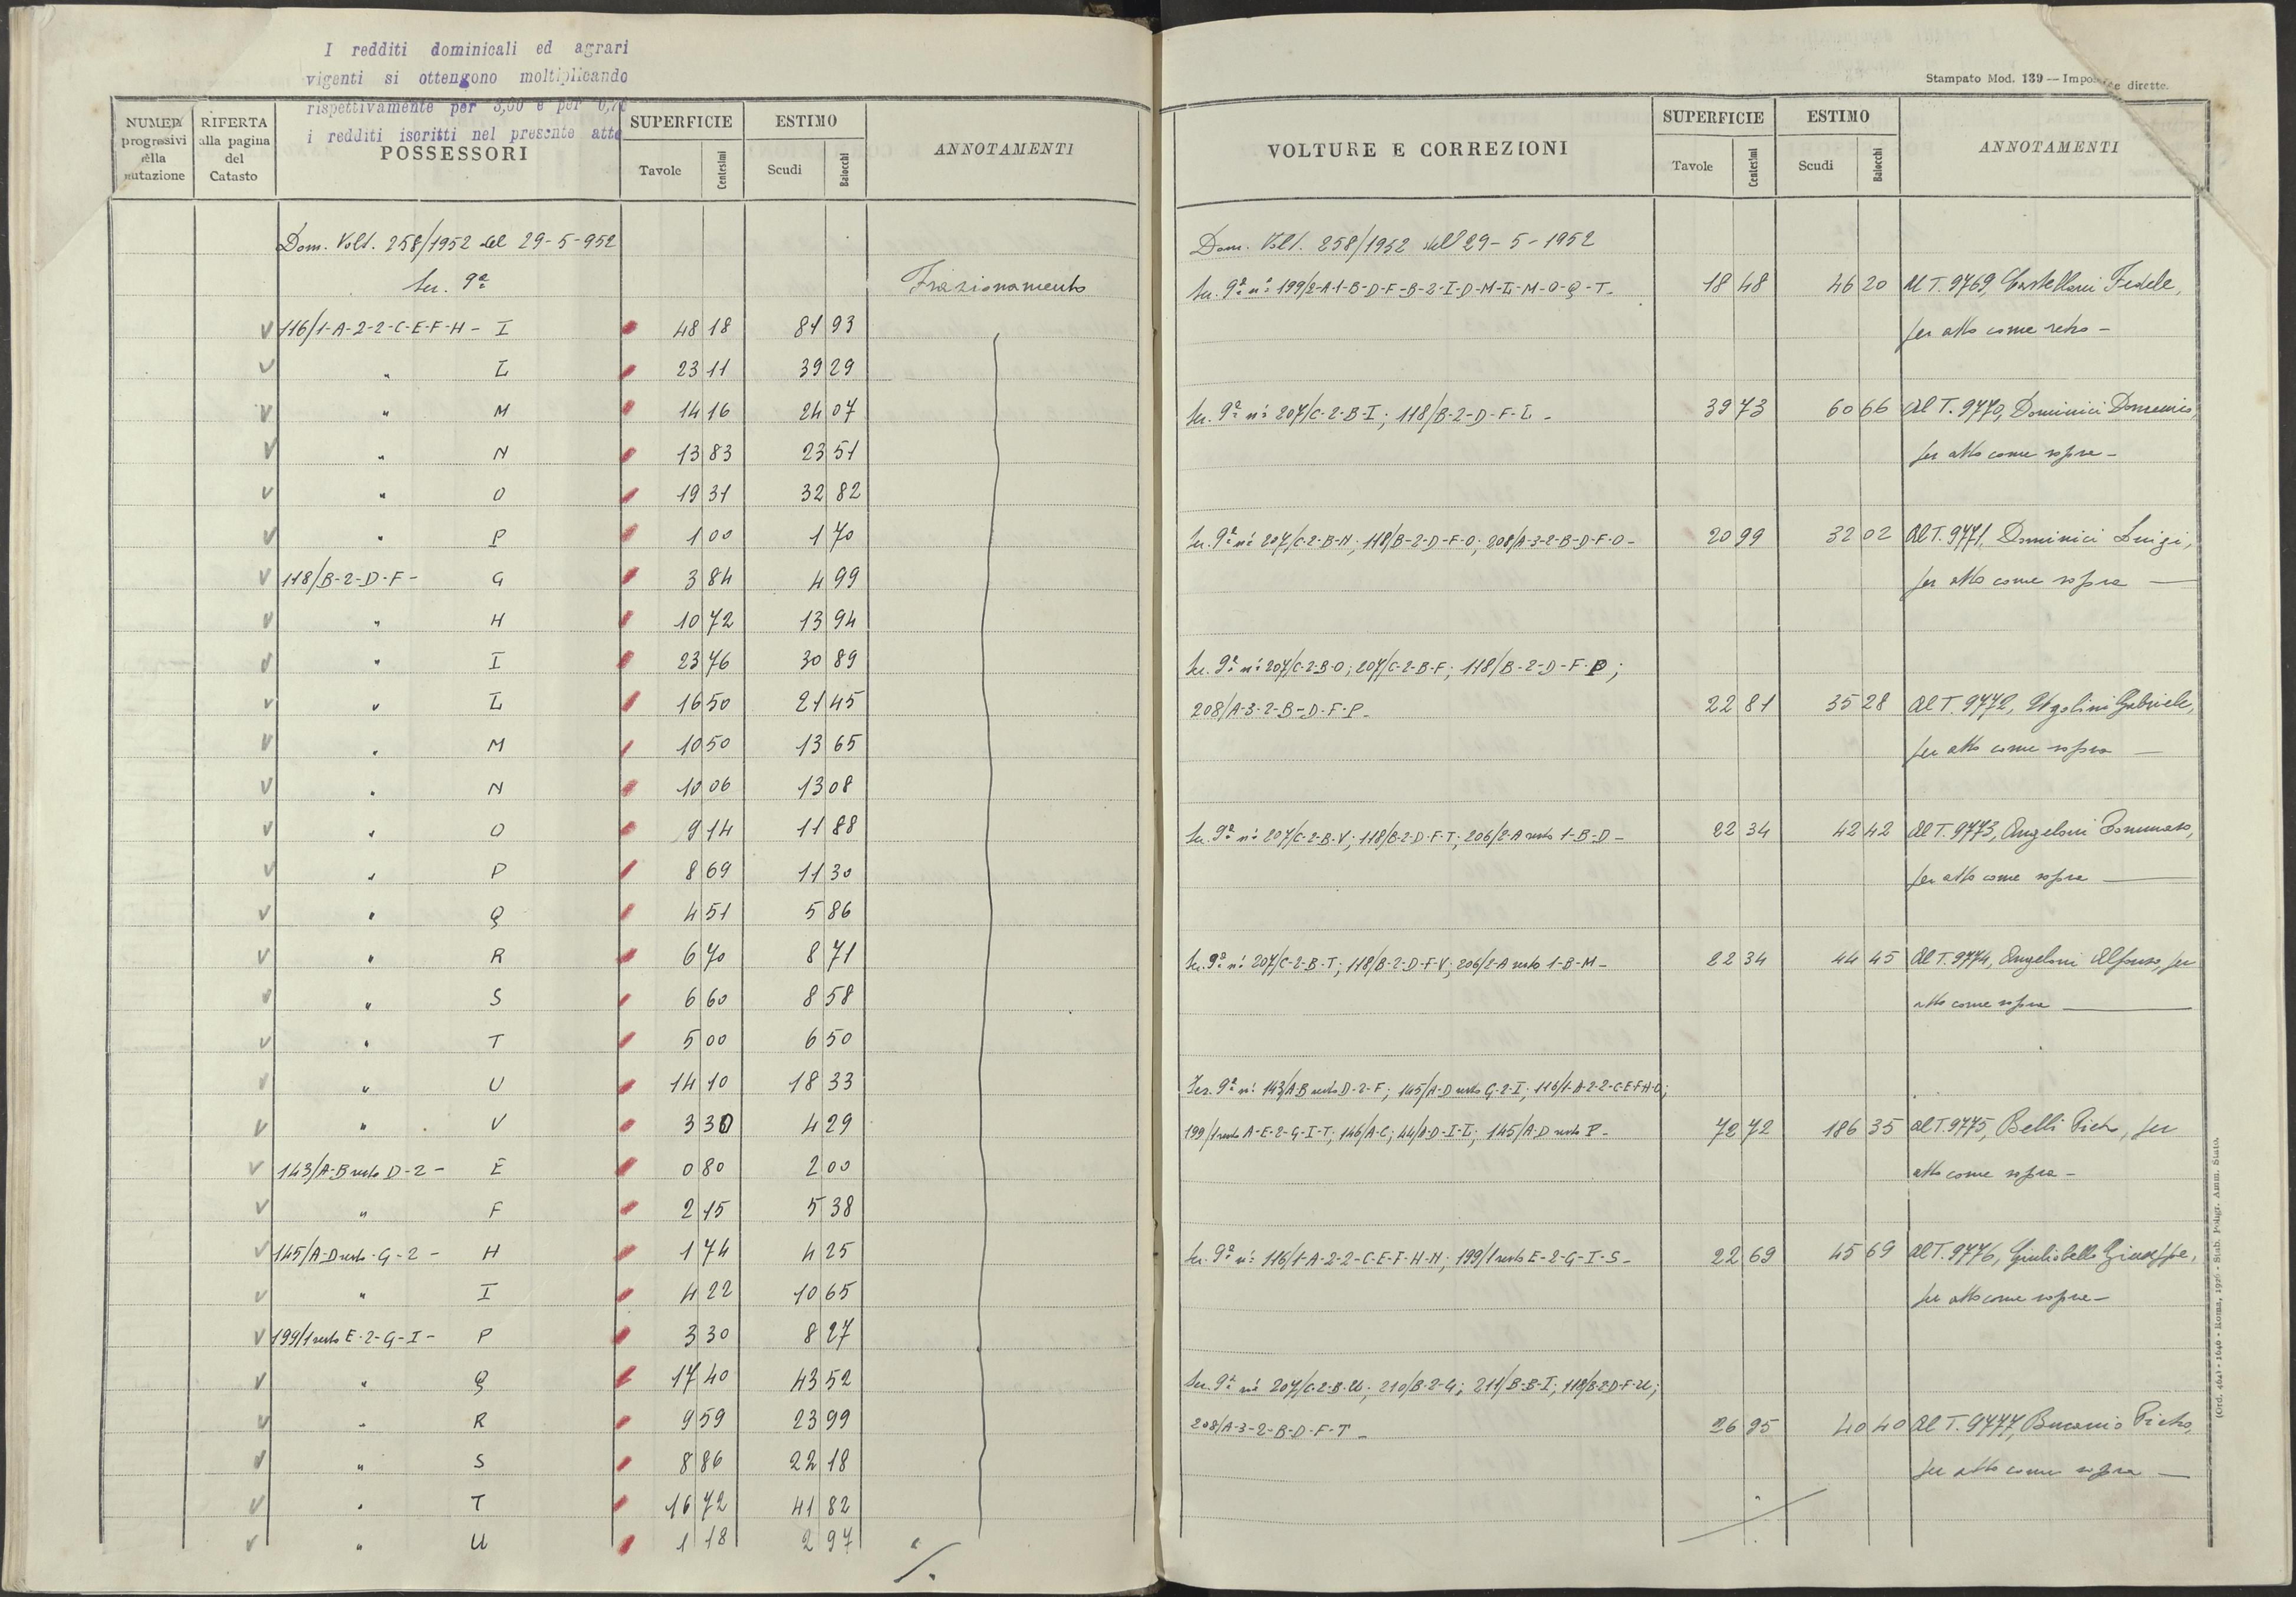 I redditi dominicali ed agrari
vigenti si ottengono moltiplicando
rispettivamente per 3,00 e per 0,72
i redditi iscritti nel presente atto
NUMERI progressivi della mutazione
RIFERTA alla pagina del Catasto
POSSESSORI
SUPERFICIE Tavole Centesimi
ESTIMO Scudi Baiocchi
ANNOTAMENTI
Dom. Volt. 258/1952 del 29-5-952
Sez. 9ª Frazionamento
V 116/1-A-2-2-C-E-F-H- I 48 18 81 93
V " L 23 11 39 29
V " M 14 16 24 07
V " N 13 83 23 51
V " O 19 31 32 82
V " P 1 00 1 70
V 118/B-2-D-F- G 3 84 4 99
V " H 10 72 13 94
V " I 23 76 30 89
V " L 16 50 21 45
V " M 10 50 13 65
V " N 10 06 13 08
V " O 9 14 11 88
V " P 8 69 11 30
V " Q 4 51 5 86
V " R 6 70 8 71
V " S 6 60 8 58
V " T 5 00 6 50
V " U 14 10 18 33
V " V 3 30 4 29
V 143/A-B resto D-2- E 0 80 2 00
V " F 2 15 5 38
V 145/A-D resto-G-2- H 1 74 4 25
V " I 4 22 10 65
V 199/1 resto E-2-G-I- P 3 30 8 27
V " Q 17 40 43 52
V " R 9 59 23 99
V " S 8 86 22 18
V " T 16 72 41 82
V " U 1 18 2 97
./.
Stampato Mod. 139 — Imposte dirette.
VOLTURE E CORREZIONI
SUPERFICIE Tavole Centesimi
ESTIMO Scudi Baiocchi
ANNOTAMENTI
Dom. Volt. 258/1952 dell 29-5-1952
Sez. 9ª n° 199/2-A-1-B-D-F-B-2-I-D-M-L-M-O-Q-T- 18 48 46 20 Al T. 9769, Castellani Fedele,
per atto come retro -
Sez. 9ª n° 207/C-2-B-I; 118/B-2-D-F-L- 39 73 60 66 Al T. 9770, Dominici Domenico,
per atto come sopra -
Sez. 9ª n° 207/C-2-B-N; 118/B-2-D-F-O; 208/A-3-2-B-D-F-O- 20 99 32 02 Al T. 9771, Dominici Luigi,
per atto come sopra —
Sez. 9ª n° 207/C-2-B-O; 207/C-2-B-F; 118/B-2-D-F-P;
208/A-3-2-B-D-F-P- 22 81 35 28 Al T. 9772, Ugolini Gabriele,
per atto come sopra —
Sez. 9ª n° 207/C-2-B-V; 118/B-2-D-F-T; 206/2-A resto 1-B-D- 22 34 42 42 Al T. 9773, Angeloni Tommaso,
per atto come sopra —
Sez. 9ª n° 207/C-2-B-T; 118/B-2-D-F-V; 206/2-A resto 1-B-M- 22 34 44 45 Al T. 9774, Angeloni Alfonso, per
atto come sopra —
Sez. 9ª n° 143/A-B resto D-2-F; 145/A-D resto G-2-I; 116/1-A-2-2-C-E-F-H-O;
199/1 resto A-E-2-G-I-T; 146/A-C; 44/A-D-I-L; 145/A-D resto P- 72 72 186 35 Al T. 9775, Belli Pietro, per
atto come sopra -
Sez. 9ª n° 116/1-A-2-2-C-E-F-H-N; 199/1 resto E-2-G-I-S- 22 69 45 69 Al T. 9776, Giuliobello Giuseppe,
per atto come sopra -
Sez. 9ª n° 207/C-2-B-U; 210/B-2-G; 211/B-B-I; 118/B-2-D-F-U;
208/A-3-2-B-D-F-T- 26 95 40 40 Al T. 9777, Pietro,
per atto come sopra —
- Roma, 1926 - Stab. Poligr. Amm. Stato.